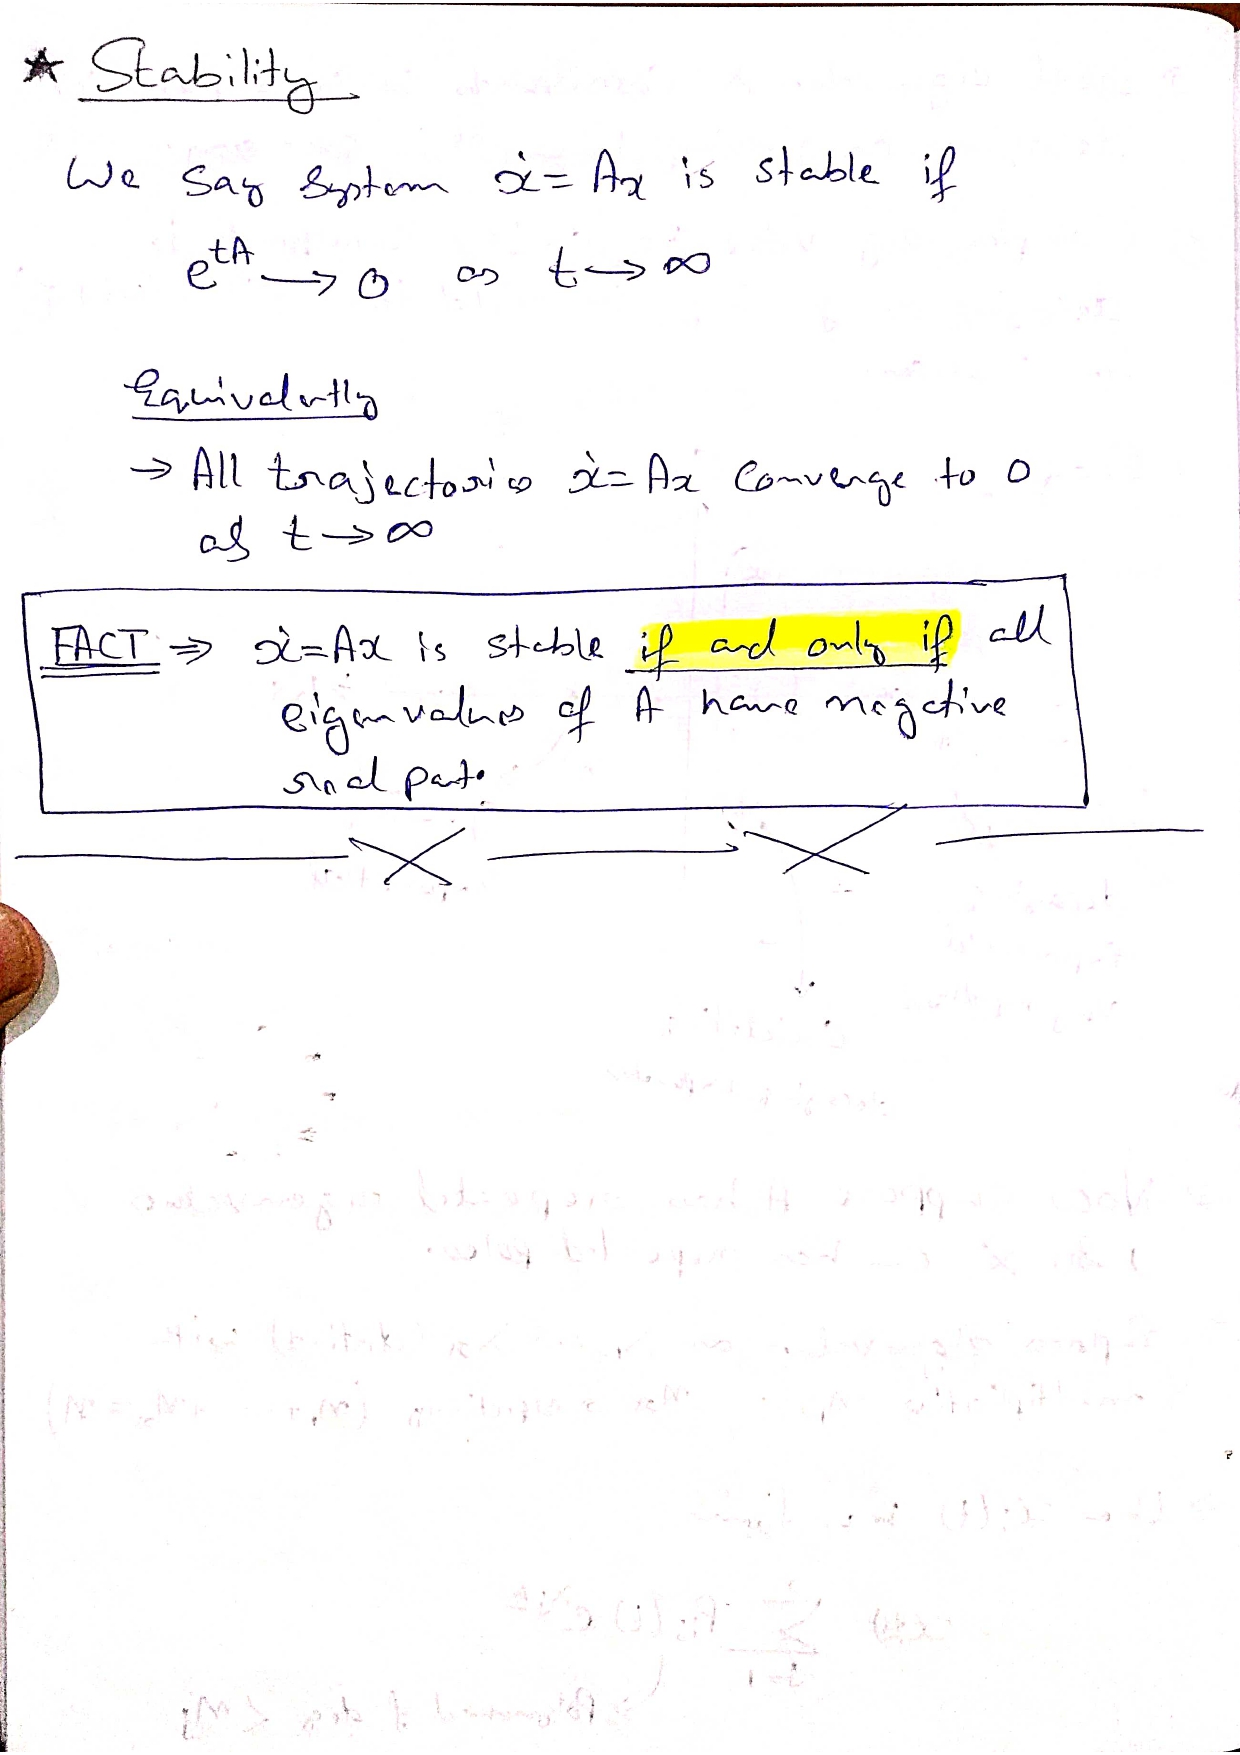 ★ Stability
We say system ẋ = Ax is stable if
e^{tA} → 0 as t → ∞
Equivalently
→ All trajectories ẋ = Ax converge to 0
as t → ∞
FACT ⇒ ẋ = Ax is stable if and only if all
eigenvalues of A have negative
real part.